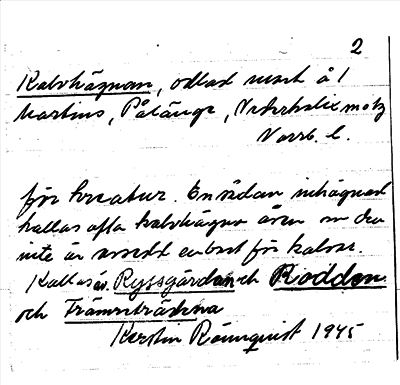 2
Kalvhägnan, odlad mark å 1
Martins, Påläng, Nederkalix mot
Norrb. l.
för kreatur. En sådan inhägnad
kallas ofta kalvhägna även om den
inte är avsedd enbart för kalvar.
Kallas äv. Ryssgärdan och Rödden
och Främsträdena
Kerstin Rönnquist 1945